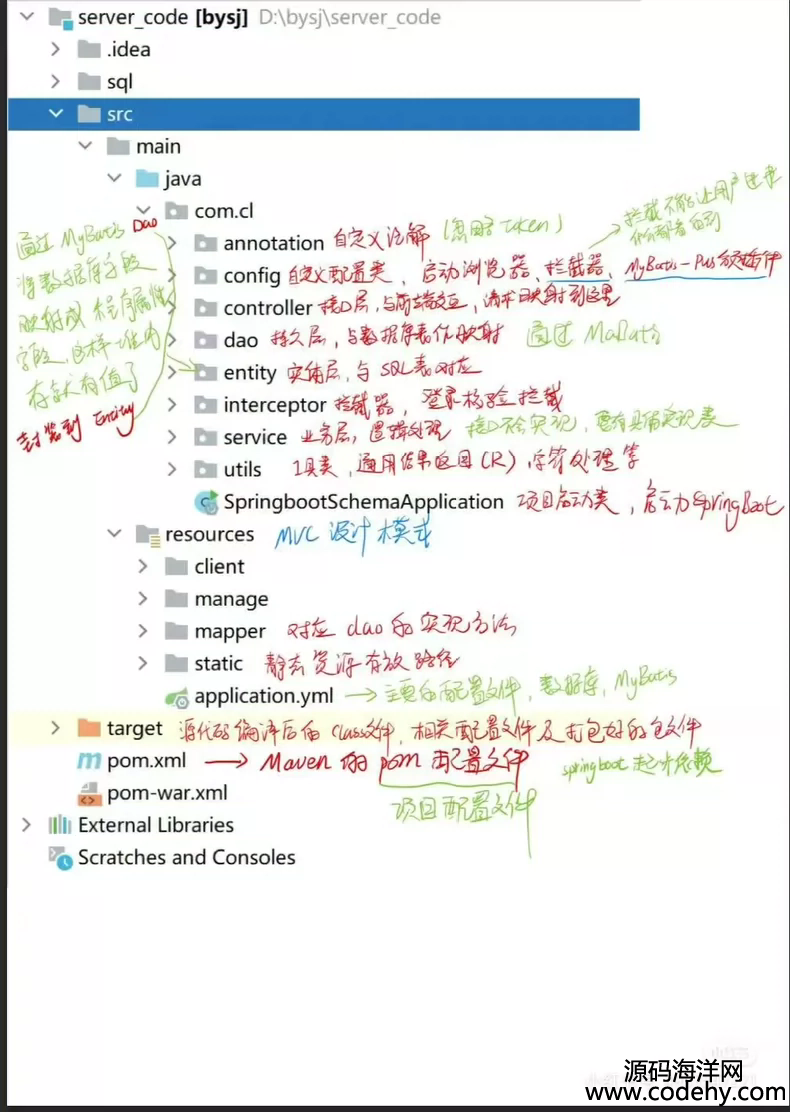 server_code [bysj] D:\bysj\server_code
.idea
sql
src
main
java
com.cl
annotation 自定义注解 (忽略Token)
拦截不能让用户进来
config 自定义配置类, 启动浏览器、拦截器、MyBatis-Plus
controller 接口层,与前端交互,请求映射到这里
dao 持久层,与数据库表做映射 通过
entity 实体层,与SQL表对应
interceptor 拦截器,登录校验拦截
service 业务层,逻辑处理 接口不会实现,要有具体实现类
utils 工具类,通用结果返回(R),字符处理等
SpringbootSchemaApplication 项目启动类,启动SpringBoot
通过 MyBatis Dao
将数据库字段
映射成 程序属性
字段,这样 内
存就有值了
封装到 Entity
resources MVC 设计模式
client
manage
mapper 对应 dao 的实现方法
static 静态资源存放路径
application.yml → 主要的配置文件,数据库,MyBatis
target 源代码编译后的class文件,相关配置文件及打包好的包文件
pom.xml → Maven 的 pom 配置文件 springboot 起步依赖
项目配置文件
pom-war.xml
External Libraries
Scratches and Consoles
源码海洋网
www.codehy.com